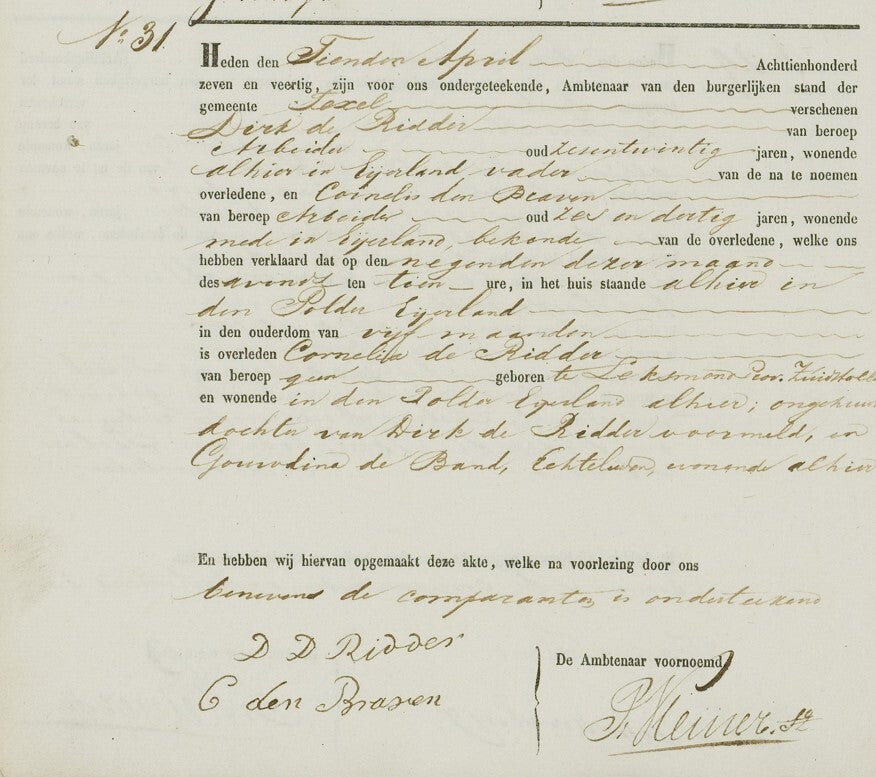 No 31.
Heden den Tienden April Achttienhonderd
zeven en veertig, zijn voor ons ondergeteekende, Ambtenaar van den burgerlijken stand der
gemeente Texel verschenen
Dirk de Ridder van beroep
Arbeider oud zesentwintig jaren, wonende
alhier in Eijerland vader van de na te noemen
overledene, en Cornelis den Braven
van beroep Arbeider oud zes en dertig jaren, wonende
mede in Eijerland, bekende van de overledene, welke ons
hebben verklaard dat op den negenden dezer maand
des avonds ten tien ure, in het huis staande alhier in
den Polder Eijerland
in den ouderdom van vijf maanden
is overleden Cornelia de Ridder
van beroep geen geboren te Leksmond Prov. Zuidholl
en wonende in den Polder Eijerland alhier; ongehuw
dochter van Dirk de Ridder voormeld, en
de Band, Echtelieden, wonende alhier
En hebben wij hiervan opgemaakt deze akte, welke na voorlezing door ons
benevens de comparanten is onderteekend
D D Ridder
C den Braven
De Ambtenaar voornoemd